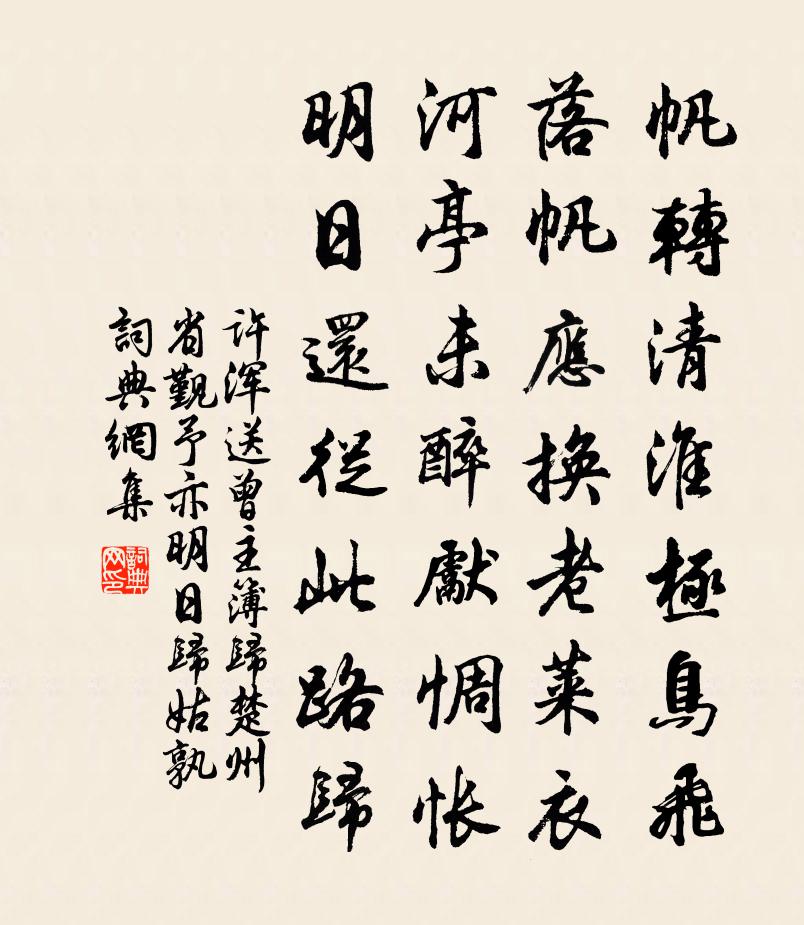 帆轉清淮極鳥飛
落帆應換老萊衣
河亭未醉獻惆悵
明日還從此路歸
许浑送曾主簿歸楚州
省觀予亦明日歸姑孰
詞典網集
詞典網印